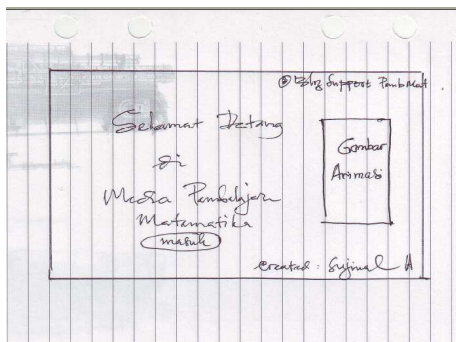 Blog Support Pembmat
Selamat Datang
di
Media Pembelajaran
Matematika
masuk
Gambar
Animasi
Created : Sujinal A